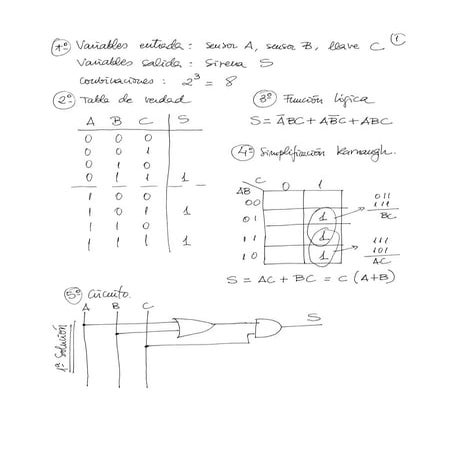 1º Variables entrada: sensor A, sensor B, llave C
1
Variables salida: Sirena S
Combinaciones: 2³ = 8
2º Tabla de verdad
A B C S
0 0 0
0 0 1
0 1 0
0 1 1 1
1 0 0
1 0 1 1
1 1 0
1 1 1 1
3º Función lógica
S = A̅BC + AB̅C + ABC
4º Simplificación Karnaugh.
C
AB 0 1
00
01 1
11 1
10 1
011
111
BC
111
101
AC
S = AC + BC = C (A+B)
5º Circuito.
A B C
S
1ª Solución